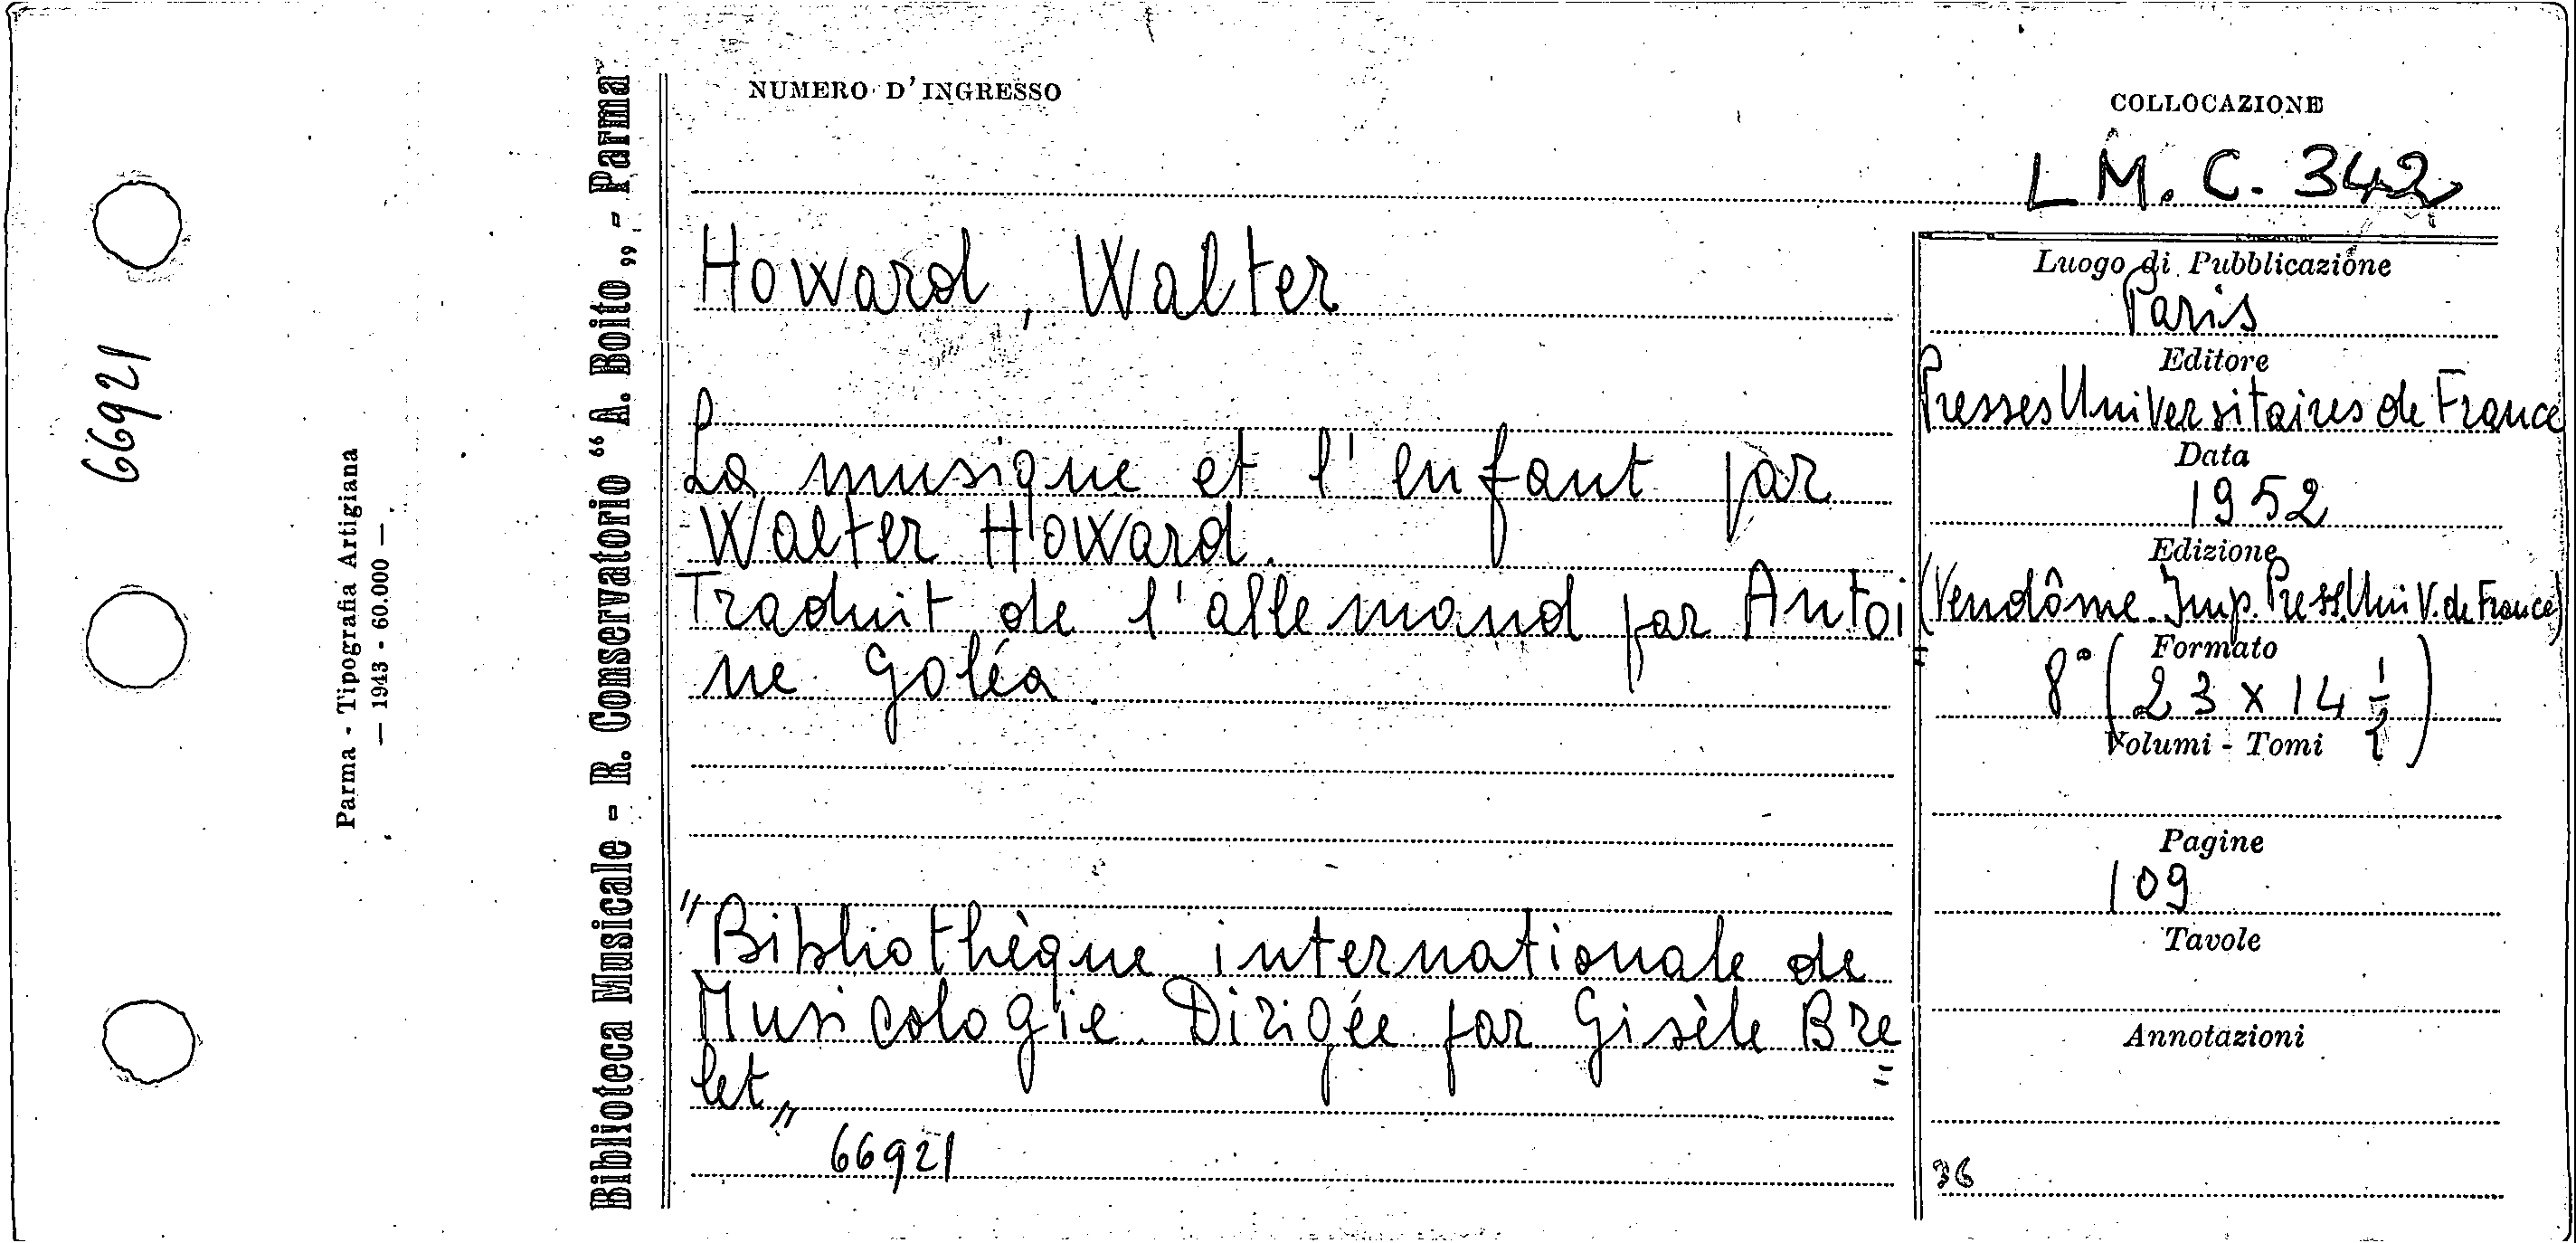 66921
Parma - Tipografia Artigiana
— 1943 - 60.000 —
Biblioteca Musicale - R. Conservatorio “A. Boito„ - Parma
NUMERO D'INGRESSO
COLLOCAZIONE
L M. C. 342
Howard, Walter
La musique et l'enfant par
Walter Howard.
Traduit de l'allemand par Antoi=
ne Goléa
"Bibliothèque internationale de
Musicologie. Dirigée par Gisèle Bre=
let„
66921
Luogo di Pubblicazione
Paris
Editore
Presses Universitaires de France
Data
1952
Edizione
(Vendôme. Imp. Press. Univ. de France)
Formato
8° (23 x 14 1/2)
Volumi - Tomi
Pagine
109
Tavole
Annotazioni
36